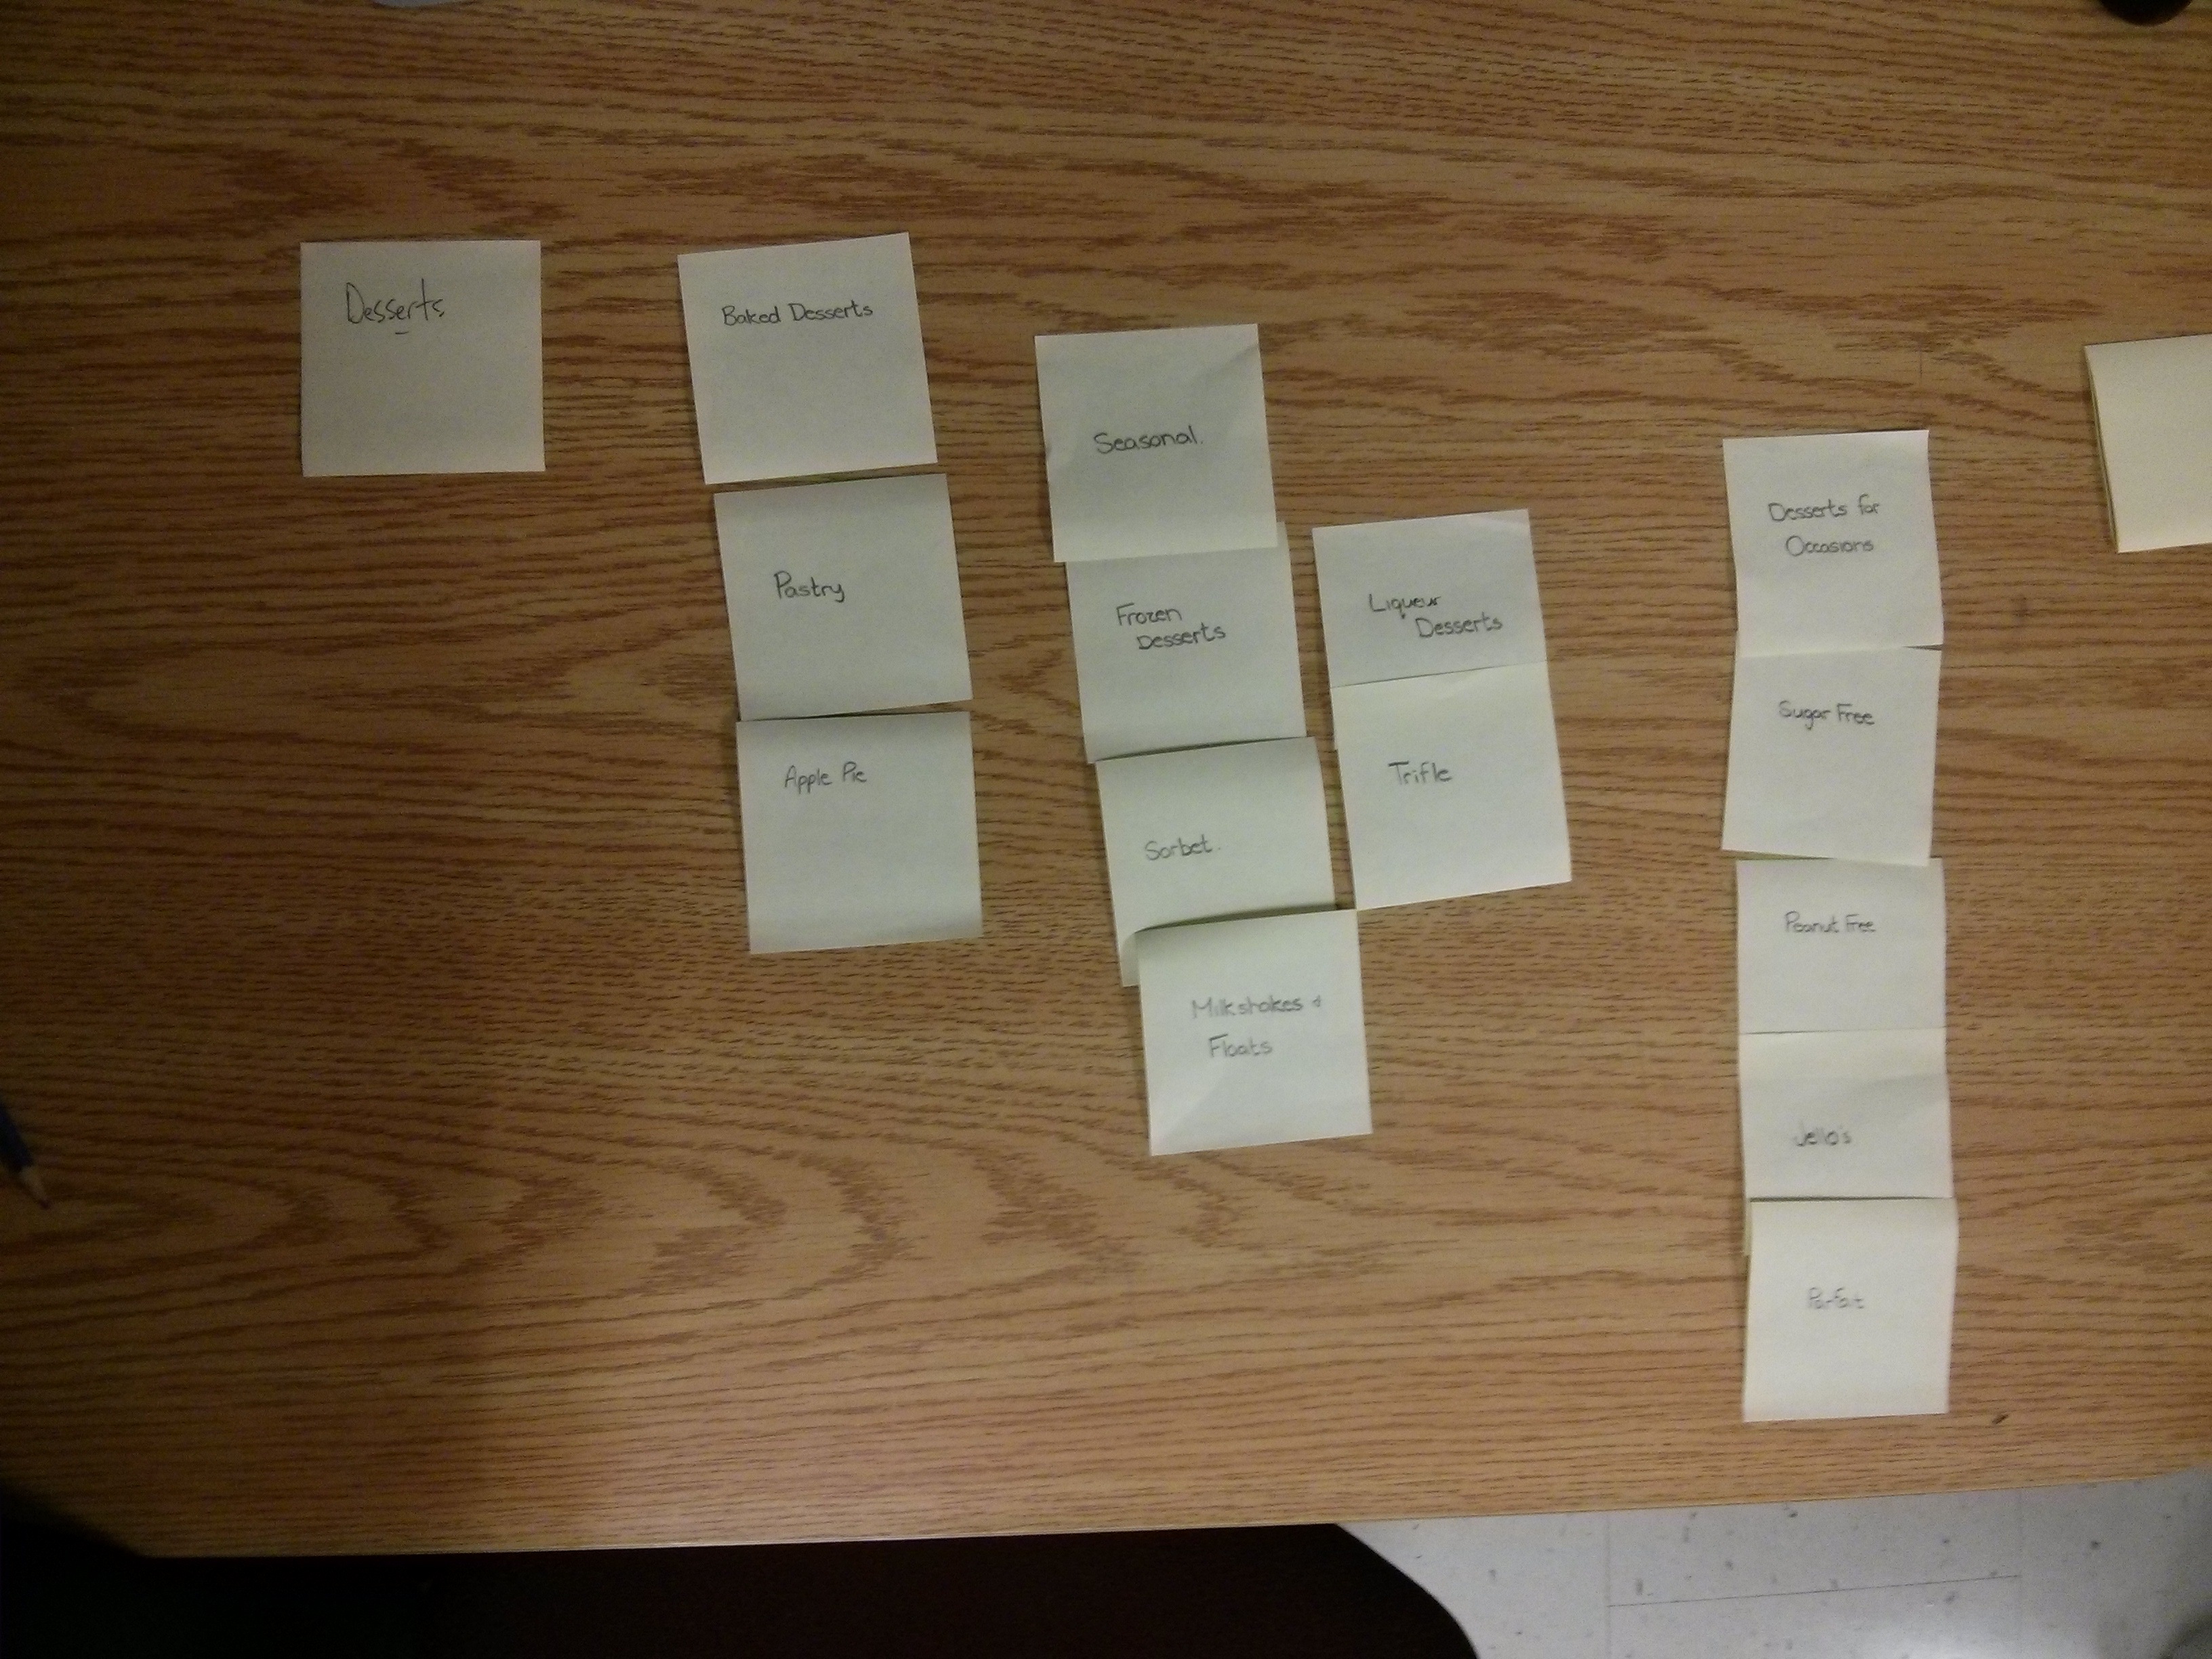 Desserts
Baked Desserts
Pastry
Apple Pie
Seasonal.
Frozen
Desserts
Sorbet.
Milkshakes &
Floats
Liqueur
Desserts
Trifle
Desserts for
Occasions
Sugar Free
Peanut Free
Jello's
Parfait